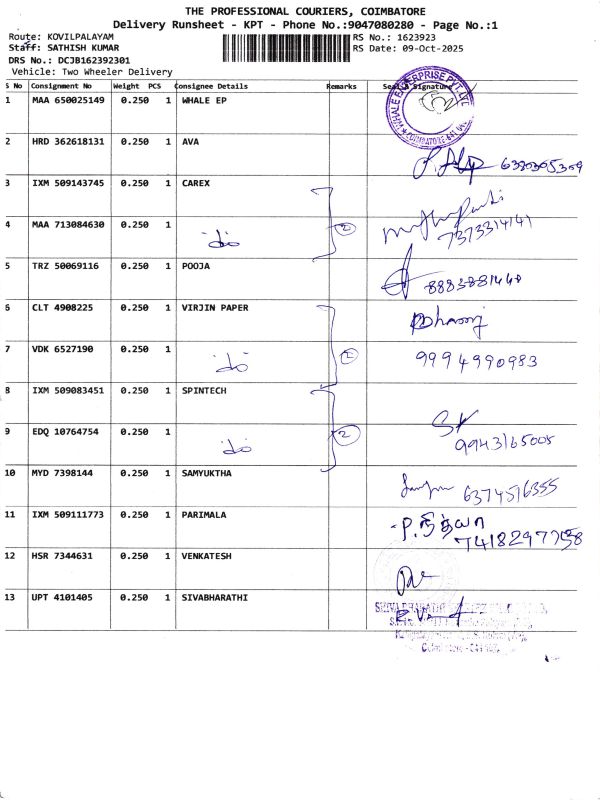 THE PROFESSIONAL COURIERS, COIMBATORE
Delivery Runsheet - KPT - Phone No.:9047080280 - Page No.:1
Route: KOVILPALAYAM RS No.: 1623923
Staff: SATHISH KUMAR RS Date: 09-Oct-2025
DRS No.: DCJB162392301
Vehicle: Two Wheeler Delivery
S No Consignment No Weight PCS Consignee Details Remarks Seal & Signature
1 MAA 650025149 0.250 1 WHALE EP
WHALE ENTERPRISE PVT. LTD.
COIMBATORE-641
2 HRD 362618131 0.250 1 AVA
6380305309
3 IXM 509143745 0.250 1 CAREX
4 MAA 713084630 0.250 1 2
7373314141
5 TRZ 50069116 0.250 1 POOJA
8883881440
6 CLT 4908225 0.250 1 VIRJIN PAPER
Dharanj
7 VDK 6527190 0.250 1 2 9994990983
8 IXM 509083451 0.250 1 SPINTECH
SK
9 EDQ 10764754 0.250 1 2 9943165005
10 MYD 7398144 0.250 1 SAMYUKTHA
6374516355
11 IXM 509111773 0.250 1 PARIMALA
P. நித்யா
12 HSR 7344631 0.250 1 VENKATESH
13 UPT 4101405 0.250 1 SIVABHARATHI